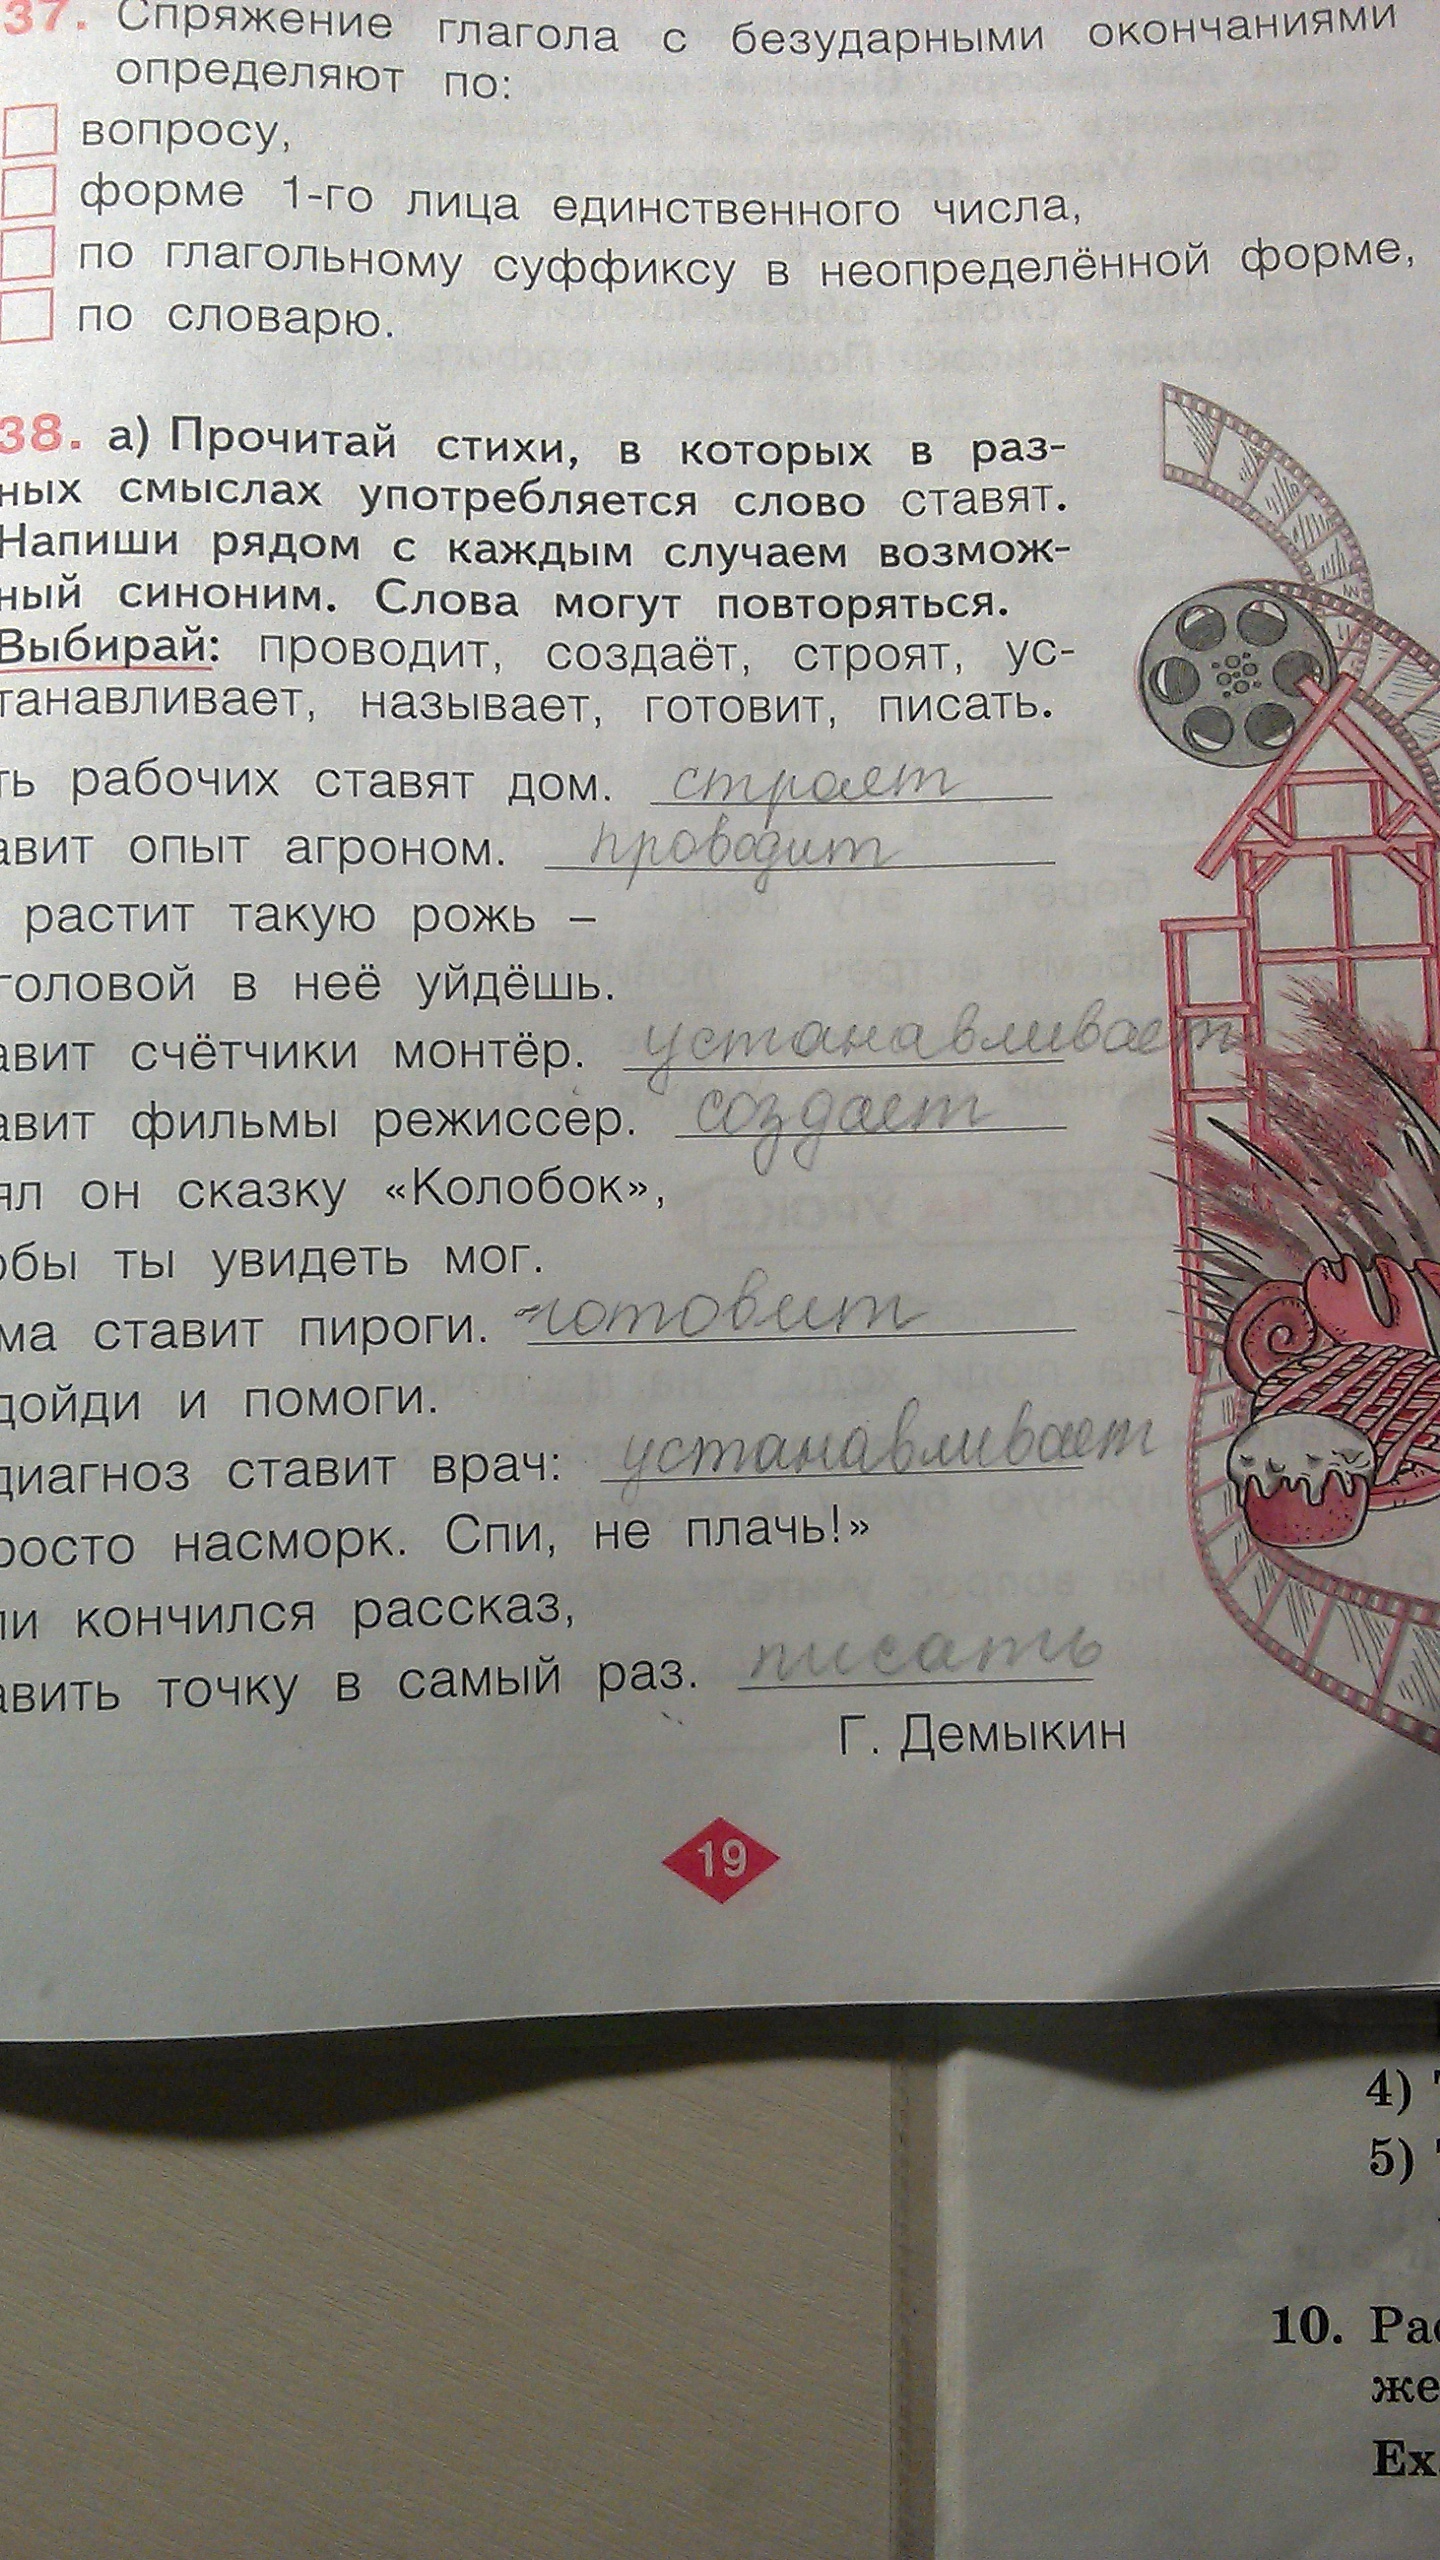 37. Спряжение глагола с безударными окончаниями
определяют по:
вопросу,
форме 1-го лица единственного числа,
по глагольному суффиксу в неопределённой форме,
по словарю.
38. а) Прочитай стихи, в которых в раз-
ных смыслах употребляется слово ставят.
Напиши рядом с каждым случаем возмож-
ный синоним. Слова могут повторяться.
Выбирай: проводит, создаёт, строят, ус-
танавливает, называет, готовит, писать.
ть рабочих ставят дом. строят
авит опыт агроном. проводит
растит такую рожь –
головой в неё уйдёшь.
авит счётчики монтёр. устанавливает
авит фильмы режиссёр. создает
ял он сказку «Колобок»,
обы ты увидеть мог.
ма ставит пироги. готовит
дойди и помоги.
диагноз ставит врач: устанавливает
росто насморк. Спи, не плачь!»
ли кончился рассказ,
авить точку в самый раз. писать
Г. Демыкин
19
4)
5)
10. Рас
же
Ex